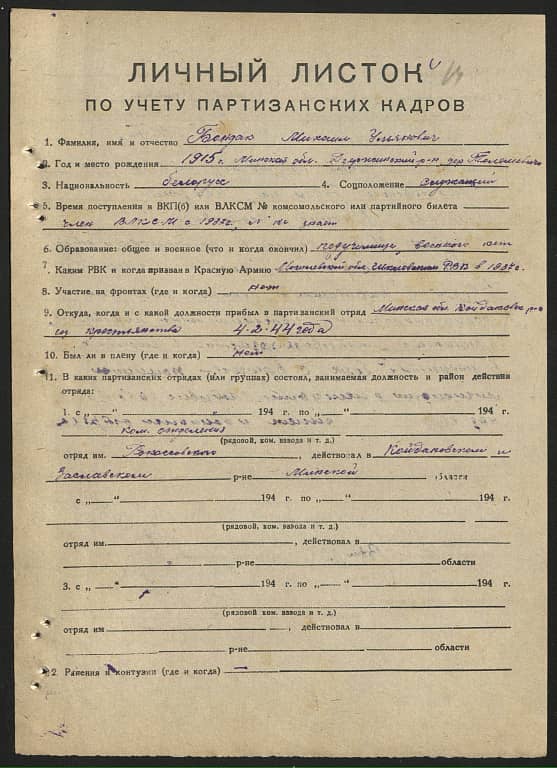 ЛИЧНЫЙ ЛИСТОК
ПО УЧЕТУ ПАРТИЗАНСКИХ КАДРОВ
1. Фамилия, имя и отчество Бондак Михаил Ульянович
2. Год и место рождения 1915 г. Минской обл. Дзержинский р-н. дер.
3. Национальность белорусс 4. Соцположение Служащий
5. Время поступления в ВКП(б) или ВЛКСМ № комсомольского или партийного билета
член ВЛКСМ с 1937г., № не знает
6. Образование: общее и военное (что и когда окончил) педучилище, военного нет
7. Каким РВК и когда призван в Красную Армию Могилевской обл. Шкловским РВК в 1937г.
8. Участие на фронтах (где и когда) нет
9. Откуда, когда и с какой должности прибыл в партизанский отряд Минская обл. Койдановск. р-на
из крестьянства 4-2-44 года
10. Был ли в плену (где и когда) нет
11. В каких партизанских отрядах (или группах) состоял, занимаемая должность и район действия
отряда:
1. с „ “ 194 г. по „ “ 194 г.
ком. отделения
(рядовой, ком. взвода и т. д.)
отряд им. , действовал в Койдановском и
Заславском р-не Минской области
с „ “ 194 г. по „ “ 194 г.
(рядовой, ком. взвода и т. д.)
отряд им. , действовал в
р-не области
3. с „ “ 194 г. по „ “ 194 г.
(рядовой, ком. взвода и т. д.)
отряд им , действовал в
р-не области
12. Ранения и контузии (где и когда) —